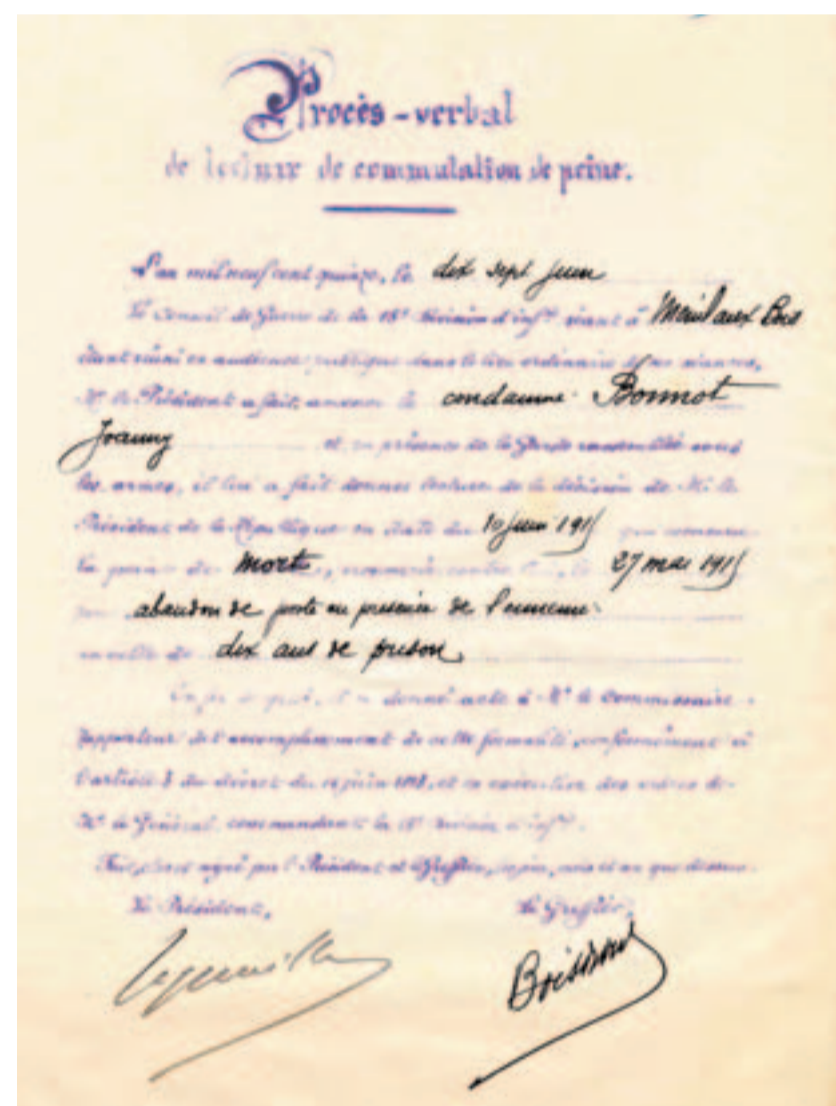 Procès-verbal
de lecture de commutation de peine.
L'an mil neuf cent quinze, le dix sept juin
Le Conseil de Guerre de la Division d'inf^rie séant à Mesnil aux Bois
étant réuni en audience publique dans le lieu ordinaire de ses séances,
M^r le Président a fait amener le condamné Bonnot
Joanny et en présence de la Garde rassemblée sous
les armes, il lui a fait donner lecture de la décision de M. le
Président de la République en date du 10 juin 1915 qui commue
la peine de mort, prononcée contre lui, le 27 mai 1915
pour abandon de poste en présence de l'ennemi
en celle de dix ans de prison
donné acte à M^r le Commissaire
Rapporteur de l'accomplissement de cette formalité, conformément à
l'article 3 du décret du juin et en exécution des ordres de
M^r le Général commandant la Division d'inf^rie.
Fait, clos et signé par le Président et le Greffier, les jour, mois et an que dessus.
Le Président, Le Greffier,